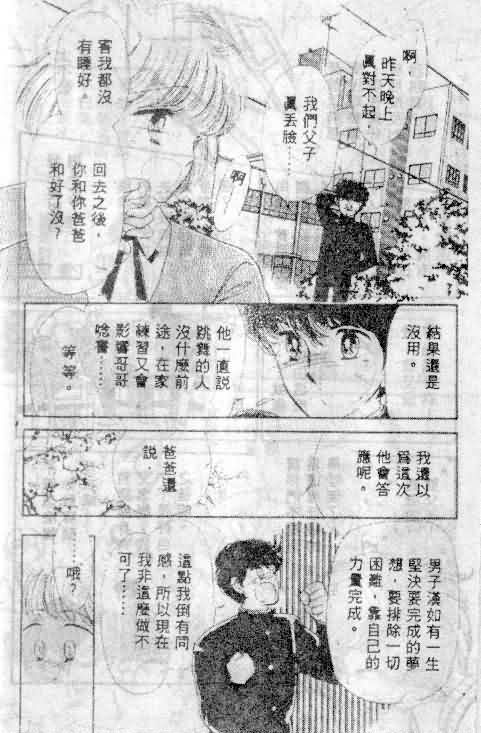 啊，
昨天晚上
眞對不起，
我們父子
眞丟臉……
啊，
害我都沒
有睡好。
回去之後，
你和你爸爸
和好了沒？
結果還是
沒用。
他一直説
跳舞的人
沒什麼前
途，在家
練習又會
影響哥哥
唸書……
等等。
我還以
爲這次
他會答
應呢。
爸爸還
説，
男子漢如有一生
堅決要完成的夢
想，要排除一切
困難，靠自己的
力量完成。
這點我倒有同
感，所以現在
我非這麼做不
可了……
……哦？